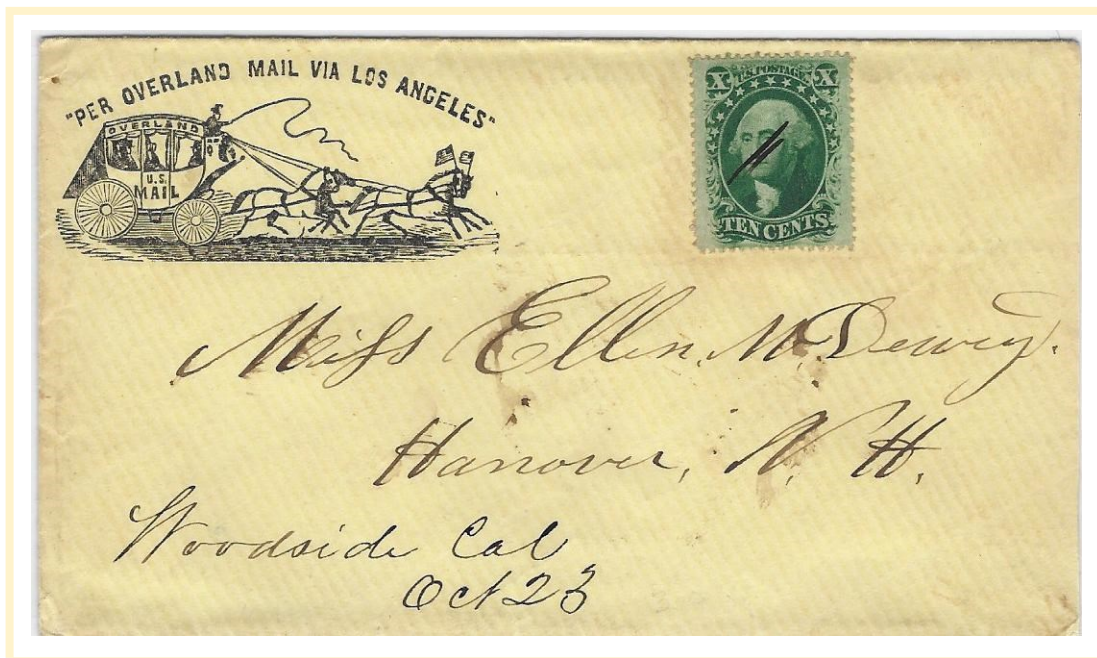 "PER OVERLAND MAIL VIA LOS ANGELES"
OVERLAND
U.S.
MAIL
X U.S. POSTAGE X
TEN CENTS
Miss Ellen M. Dewey.
Hanover, N. H.
Woodside Cal
Oct 23